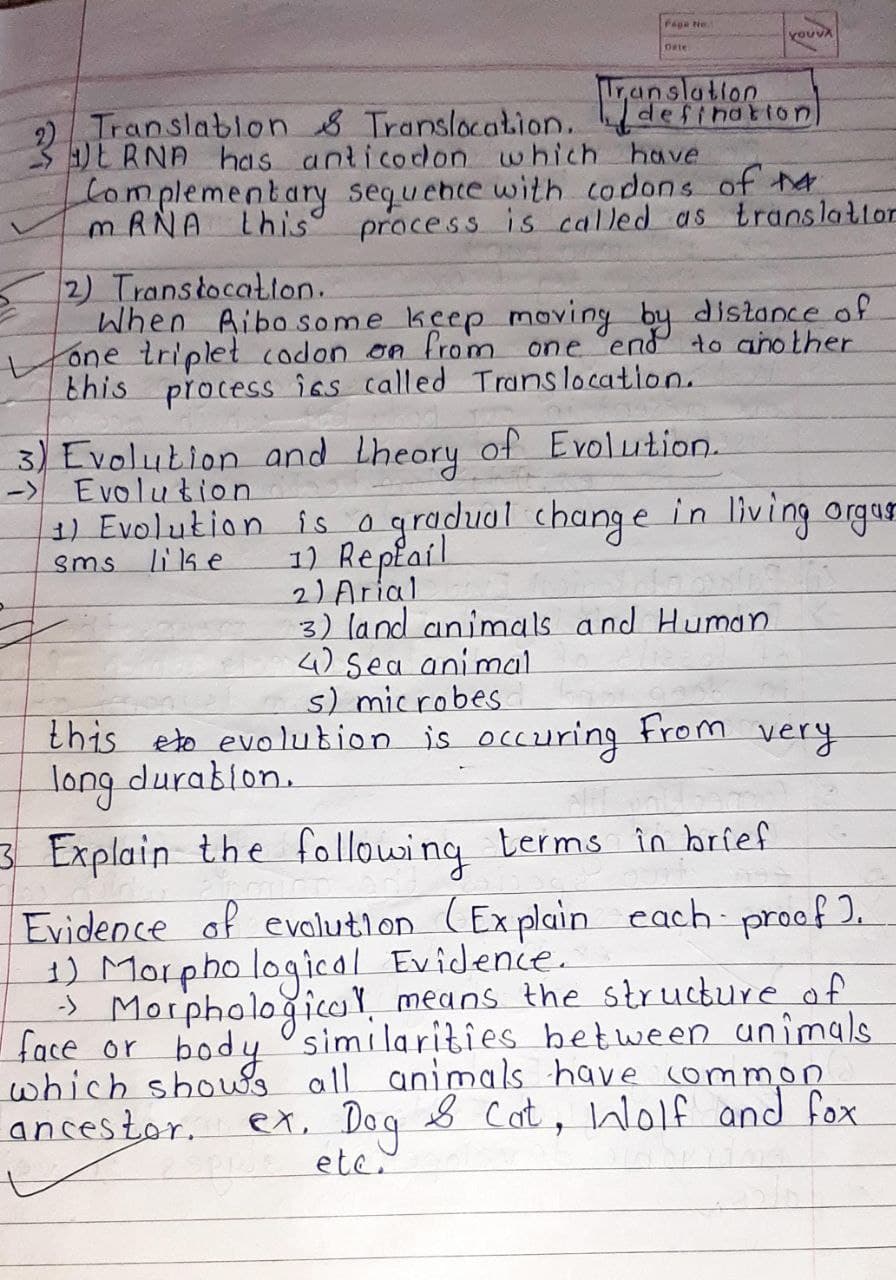 Page No.
Date
YOUVA
Translation
defination
2) Translation & Translocation.
-> 1) t RNA has anticodon which have
Complementary sequence with codons of
m RNA this process is called as translation
2) Translocation.
When Ribosome keep moving by distance of
one triplet codon on from one end to another
this process is called Translocation.
3) Evolution and theory of Evolution.
-> Evolution
1) Evolution is a gradual change in living orgas
sms like 1) Reptail
2) Arial
3) land animals and Human
4) Sea animal
5) microbes
this evolution is occuring From very
long duration.
3 Explain the following terms in brief
Evidence of evolution (Explain each proof).
1) Morphological Evidence.
-> Morphological means the structure of
face or body similarities between animals
which shows all animals have common
ancestor. ex. Dog & Cat, Wolf and fox
etc.